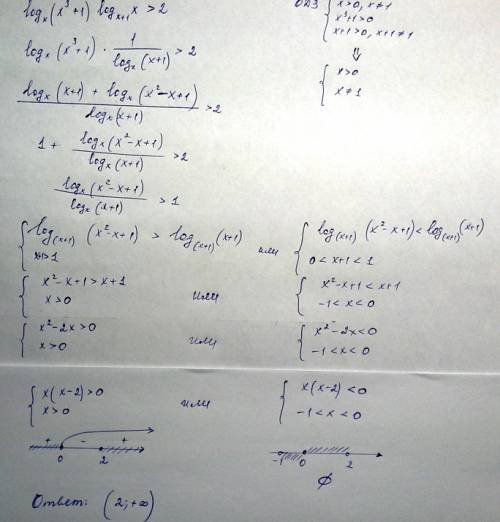 logₓ(x³+1) logₓ₊₁ x > 2
ОДЗ { x>0, x≠1
x³+1>0
x+1>0, x+1≠1
logₓ(x³+1) · 1/logₓ(x+1) > 2
⇓
{ x>0
x≠1
(logₓ(x+1) + logₓ(x²−x+1))/logₓ(x+1) > 2
1 + logₓ(x²−x+1)/logₓ(x+1) > 2
logₓ(x²−x+1)/logₓ(x+1) > 1
{ log₍ₓ₊₁₎(x²−x+1) > log₍ₓ₊₁₎(x+1) или { log₍ₓ₊₁₎(x²−x+1) < log₍ₓ₊₁₎(x+1)
x+1>1 0<x+1<1
{ x²−x+1>x+1 или { x²−x+1<x+1
x>0 −1<x<0
{ x²−2x>0 или { x²−2x<0
x>0 −1<x<0
{ x(x−2)>0 или { x(x−2)<0
x>0 −1<x<0
+ − +
0 2 −1 0 2
∅
Ответ: (2;+∞)